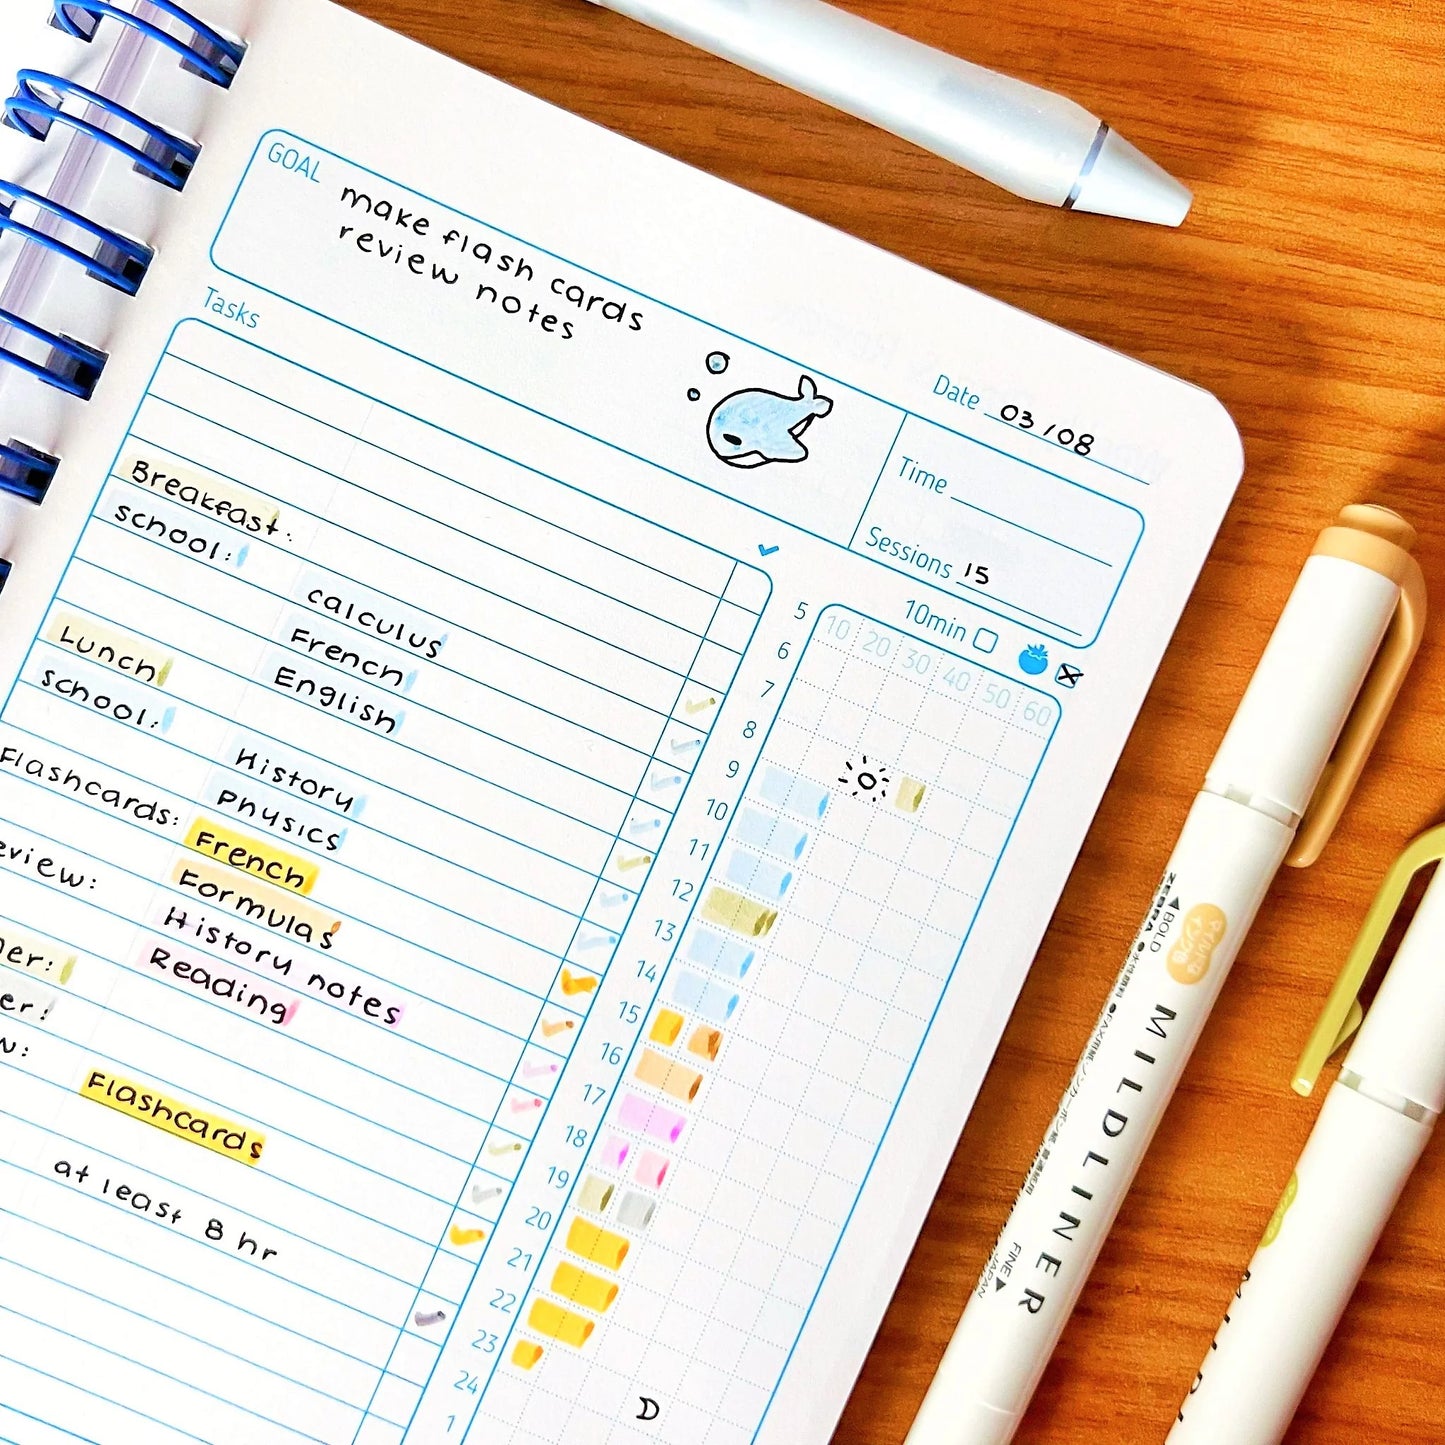 GOAL
make flash cards
review notes
Date 03/08
Time
Sessions 15
Tasks
10min
10 20 30 40 50 60
Breakfast:
school:
calculus
French
English
Lunch
school:
History
Physics
Flashcards: French
Formulas
eview:
History notes
Reading
ner:
er:
w:
Flashcards
at least 8 hr
5
6
7
8
9
10
11
12
13
14
15
16
17
18
19
20
21
22
23
24
1
D
ZEBRA
BOLD
マイルド
MILDLINER
FINE
JAPAN